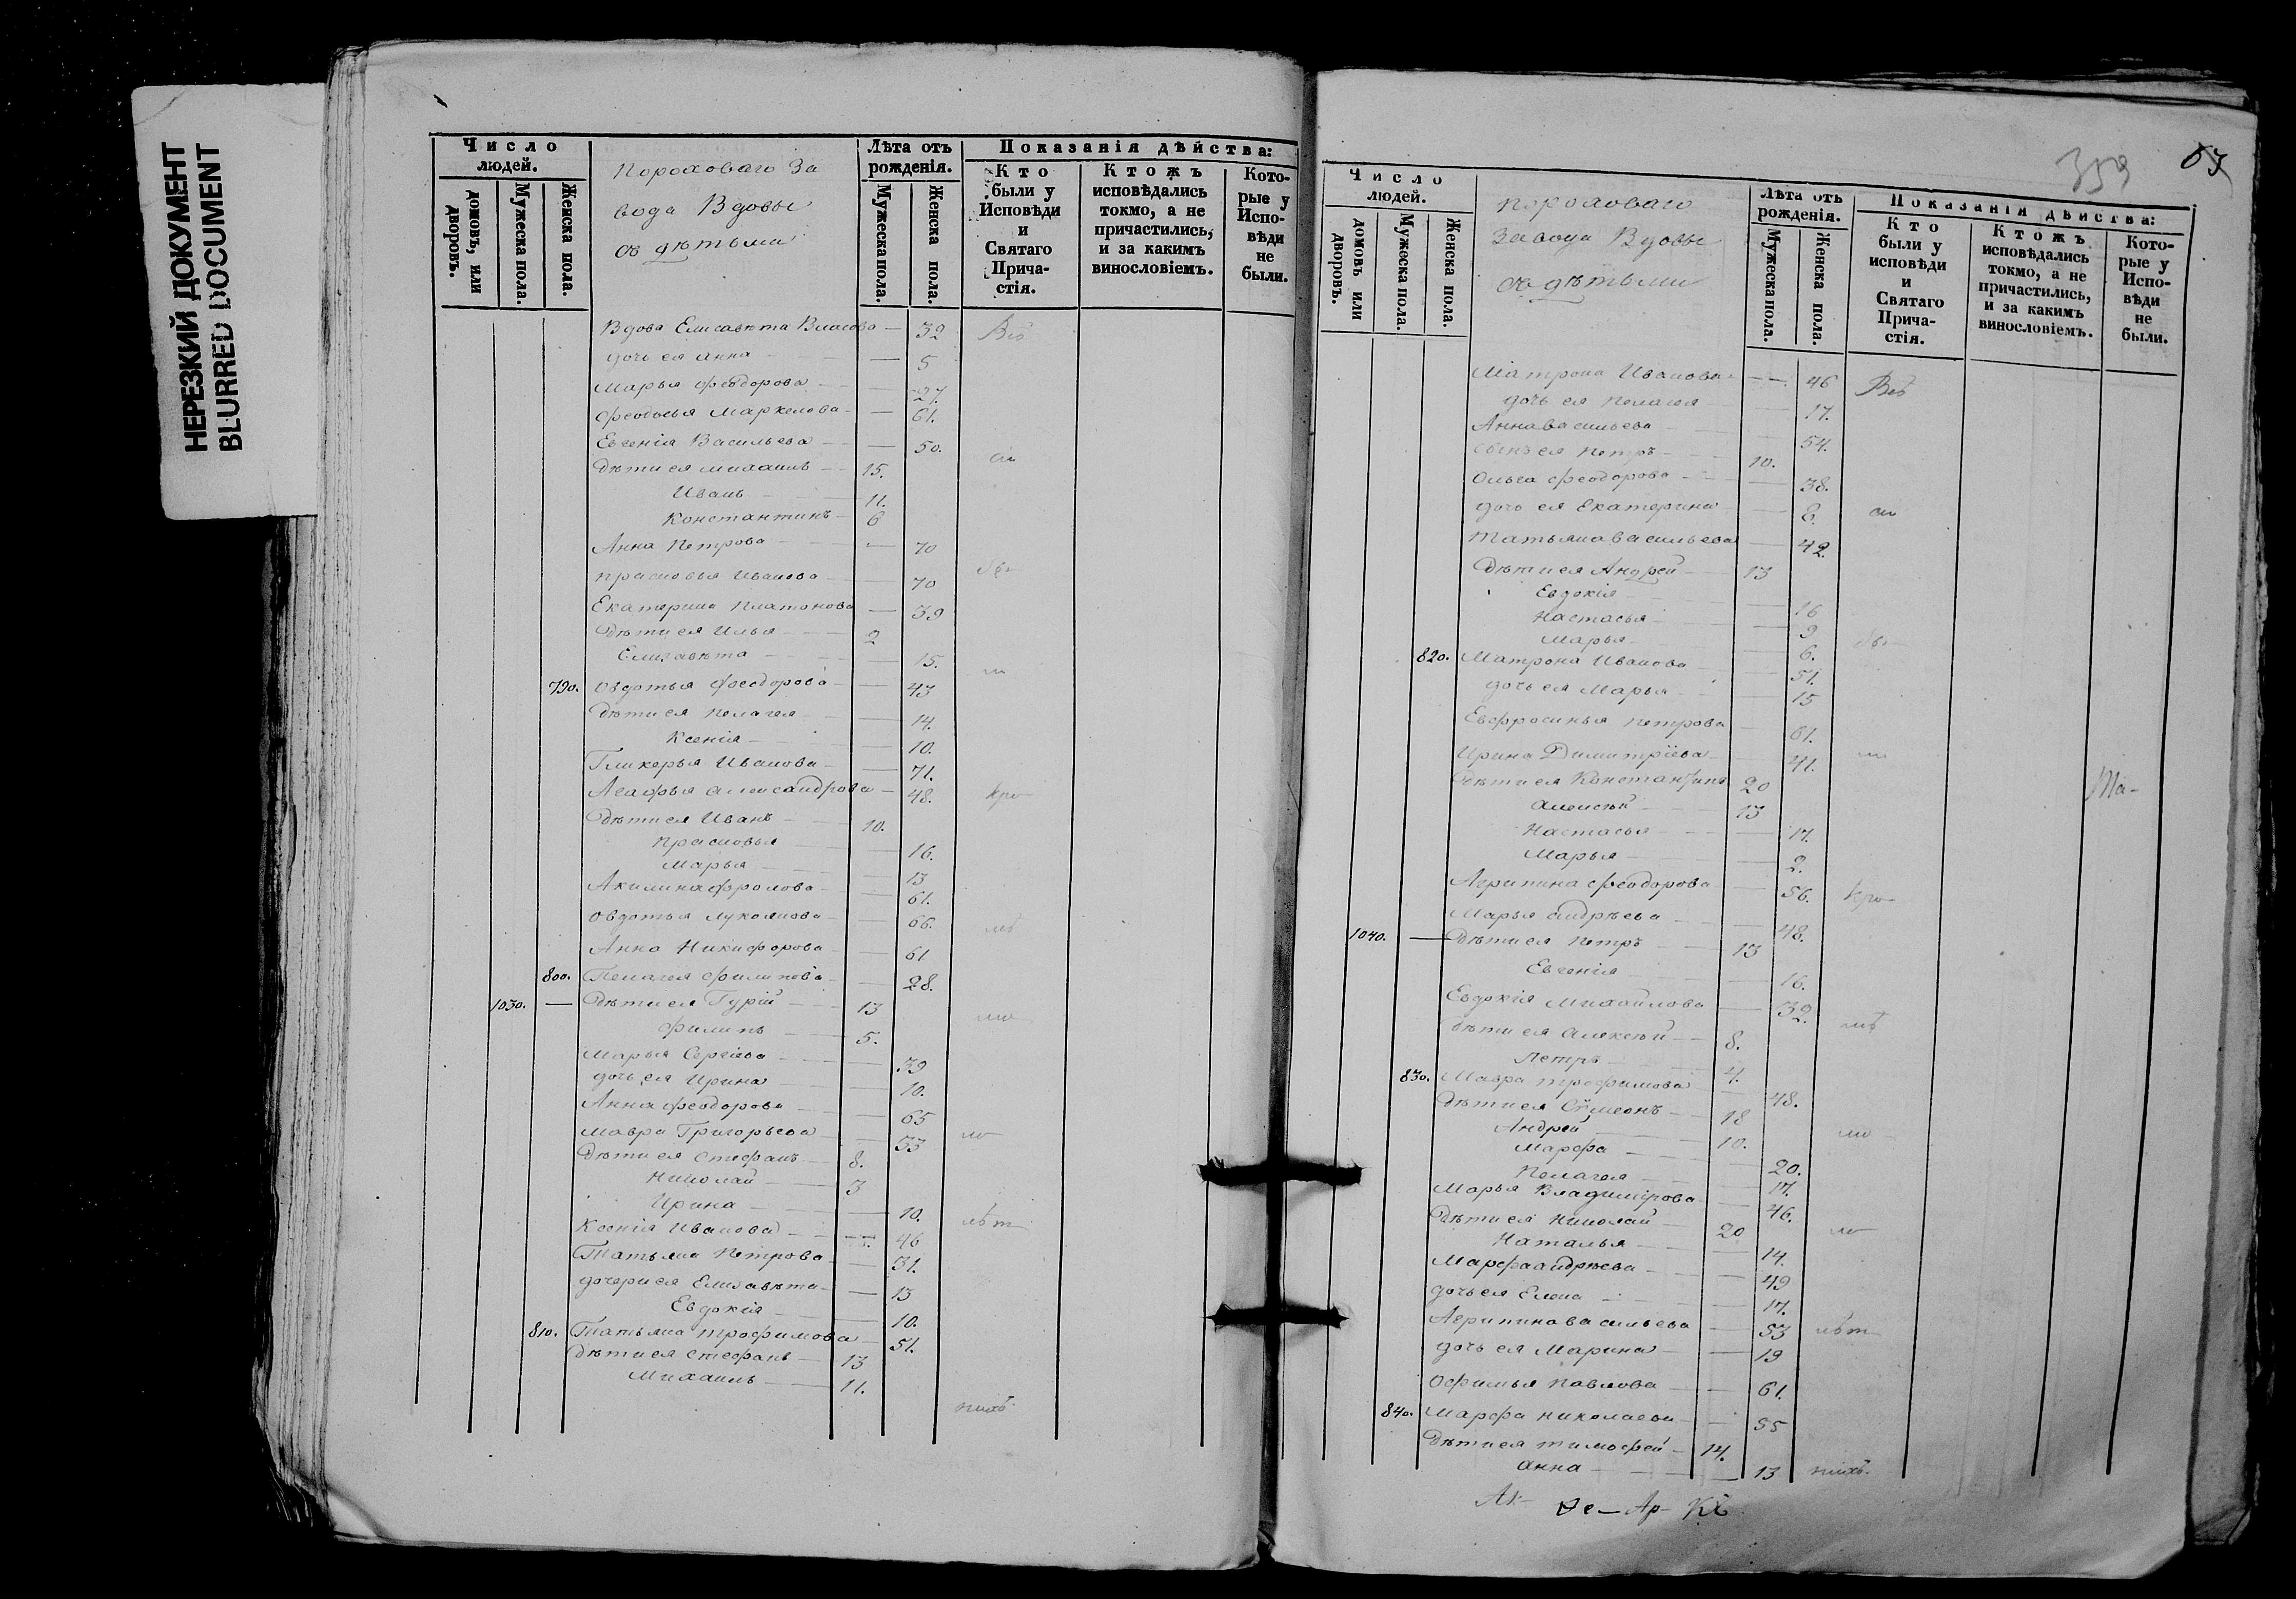 НЕРЕЗКИЙ ДОКУМЕНТ
BLURRED DOCUMENT
Число людей.
домовъ, или дворовъ.
Мужеска пола.
Женска пола.
Пороховаго За
вода Вдовы
съ дѣтьми
Лѣта отъ рожденія.
Мужеска пола.
Женска пола.
Показанія дѣйства:
Кто были у Исповѣди и Святаго Прича-стія.
Ктожъ исповѣдались токмо, а не причастились, и за какимъ винословіемъ.
Кото-рые у Испо-вѣди не были.
Вдова Елисавѣта Власова — 32 Всѣ
дочь ея Анна — 5
Марья Феодорова — 27.
Феодосья Маркелова — 61.
Евгенія Васильева — 50.
Дѣти ея Михаилъ — 15. сіи
Иванъ — 11.
Константинъ — 6
Анна Петрова — 70
Прасковья Иванова — 70
Екатерина Платонова — 39
Дѣти ея Илья — 2
Елизавѣта — 15.
790. Овдотья Феодорова — 43
Дѣти ея Пелагея — 14.
Ксенія — 10.
Гликерья Иванова — 71.
Агафья Александрова — 48. кро-
Дѣти ея Иванъ — 10.
Прасковья — 16.
Марья — 13
Акилина Фролова — 61.
Овдотья Лукоянова — 66. мѣ
Анна Никифорова — 61
800. Пелагея Филипова — 28.
1030. — Дѣти ея Гурій — 13
Филипъ — 5.
Марья Сергіева — 39
дочь ея Ирина — 10.
Анна Феодорова — 65
Мавра Григорьева — 53
Дѣти ея Стефанъ — 8.
Николай — 3
Ирина — 10. лѣт
Ксенія Иванова — 46
Татьяна Петрова — 31.
дочери ея Елизавѣта — 13
Евдокія — 10.
810. Татьяна Трофимова — 51.
Дѣти ея Стефанъ — 13
Михаилъ — 11.
нихъ.
359
Число людей.
домовъ или дворовъ.
Мужеска пола.
Женска пола.
Пороховаго
Завода Вдовы
съ дѣтьми
Лѣта отъ рожденія.
Мужеска пола.
Женска пола.
Показанія дѣйства:
Кто были у исповѣди и Святаго Прича-стія.
Ктожъ исповѣдались токмо, а не причастились, и за какимъ винословіемъ.
Кото-рые у Испо-вѣди не были.
Матрона Иванова — 46 Всѣ
дочь ея Пелагея — 17.
Анна Васильева — 54.
Сынъ ея Петръ — 10.
Ольга Феодорова — 38.
дочь ея Екатерина — 8. сіи
Татьяна Васильева — 42.
Дѣти ея Андрей — 13
Евдокія — 16
Настасья — 9
Марья — 6.
820. Матрона Иванова — 51.
дочь ея Марья — 15
Евфросинья Петрова — 61.
Ирина Димитріева — 41.
Дѣти ея Константинъ 20
Алексѣй — 13
Настасья — 17.
Марья — 2.
Агрипина Феодорова — 56. кро-
Марья Андрѣева — 48.
1040. — Дѣти ея Петръ — 13
Евгенія — 16.
Евдокія Михайлова — 32. мѣ
Дѣти ея Алексѣй — 8.
Петръ — 4.
830. Мавра Трофимова — 48.
Дѣти ея Сѵмеонъ — 18
Андрей — 10.
Марфа — 20.
Пелагея — 17.
Марья Владимірова — 46.
Дѣти ея Николай — 20
Наталья — 14.
Марфа Андрѣева — 49
дочь ея Елена — 17.
Агрипина Васильева — 53 лѣт
дочь ея Марина — 19
Офимья Павлова — 61.
840. Марфа Николаева — 55
Дѣти ея Тимофей — 14.
Анна — 13 нихъ.